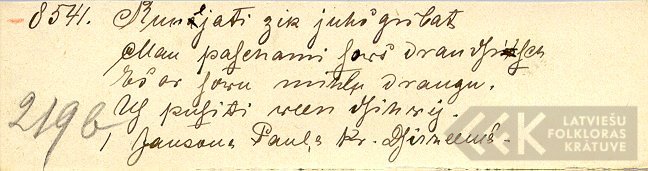 8541. Runājati zik juhs gribat
Man paschami saws draudsisch
Es ar sawu mihļu draugu.
Us pusiti ween dsihwij.
219b
Jansons Pauls Kr. Dsirzeems.
LATVIEŠU
FOLKLORAS
KRĀTUVE